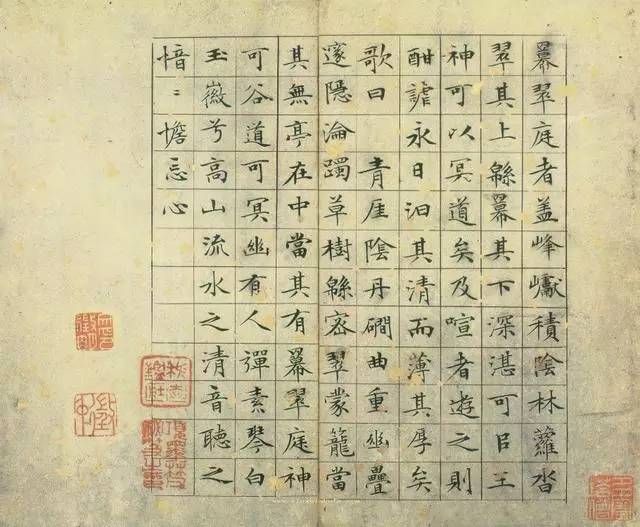 羃翠庭者盖峰巘積陰林蘿沓
翠其上緜羃其下深湛可㠯王
神可以冥道矣及喧者遊之則
酣謔永日汩其清而薄其厚矣
歌曰　青崖陰丹磵曲重幽疊
邃隱淪躅草樹緜密翠蒙籠當
其無亭在中當其有羃翠庭神
可谷道可冥幽有人彈素琴白
玉徽兮高山流水之清音聽之
愔〻憺忘心